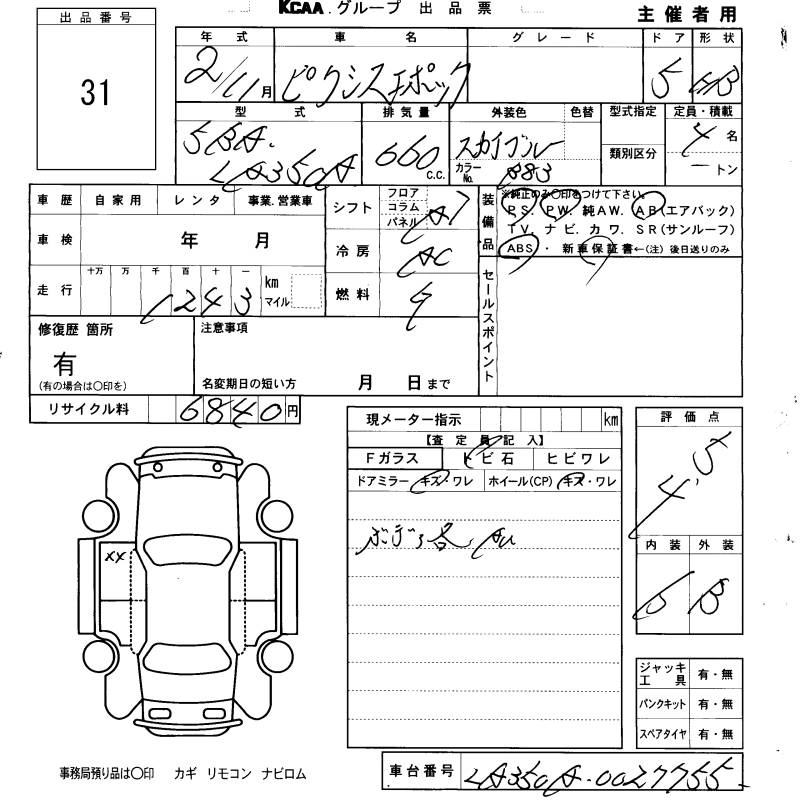 出品番号
31
KCAA.グループ 出品票
主催者用
年式 車名 グレード ドア 形状
2/11月 ピクシスエポック 5 HB
型式 排気量 外装色 色替 型式指定 定員・積載
5BA- LA350A 660 C.C. スカイブルー カラーNo. B83 類別区分 4名 ートン
車歴 自家用 レンタ 事業.営業車
車検 年 月
走行 十万 万 千 百 十 一 1243 km マイル
シフト フロア コラム パネル AT
冷房 AC
燃料 G
装備品
※純正のみ〇印をつけて下さい。
PS. PW. 純AW. AB(エアバック)
TV. ナビ. カワ. SR(サンルーフ)
ABS ・ 新車保証書←(注) 後日送りのみ
セールスポイント
修復歴 箇所
有
(有の場合は〇印を)
注意事項
名変期日の短い方 月 日まで
リサイクル料 6840円
現メーター指示 km
【査定員記入】
Fガラス トビ石 ヒビワレ
ドアミラー キズ・ワレ ホイール(CP) キズ・ワレ
ボデー各、AU
評価点
4.5
内装 外装
B
XX
ジャッキ工具 有・無
パンクキット 有・無
スペアタイヤ 有・無
事務局預り品は〇印 カギ リモコン ナビロム
車台番号 LA350A-0027755